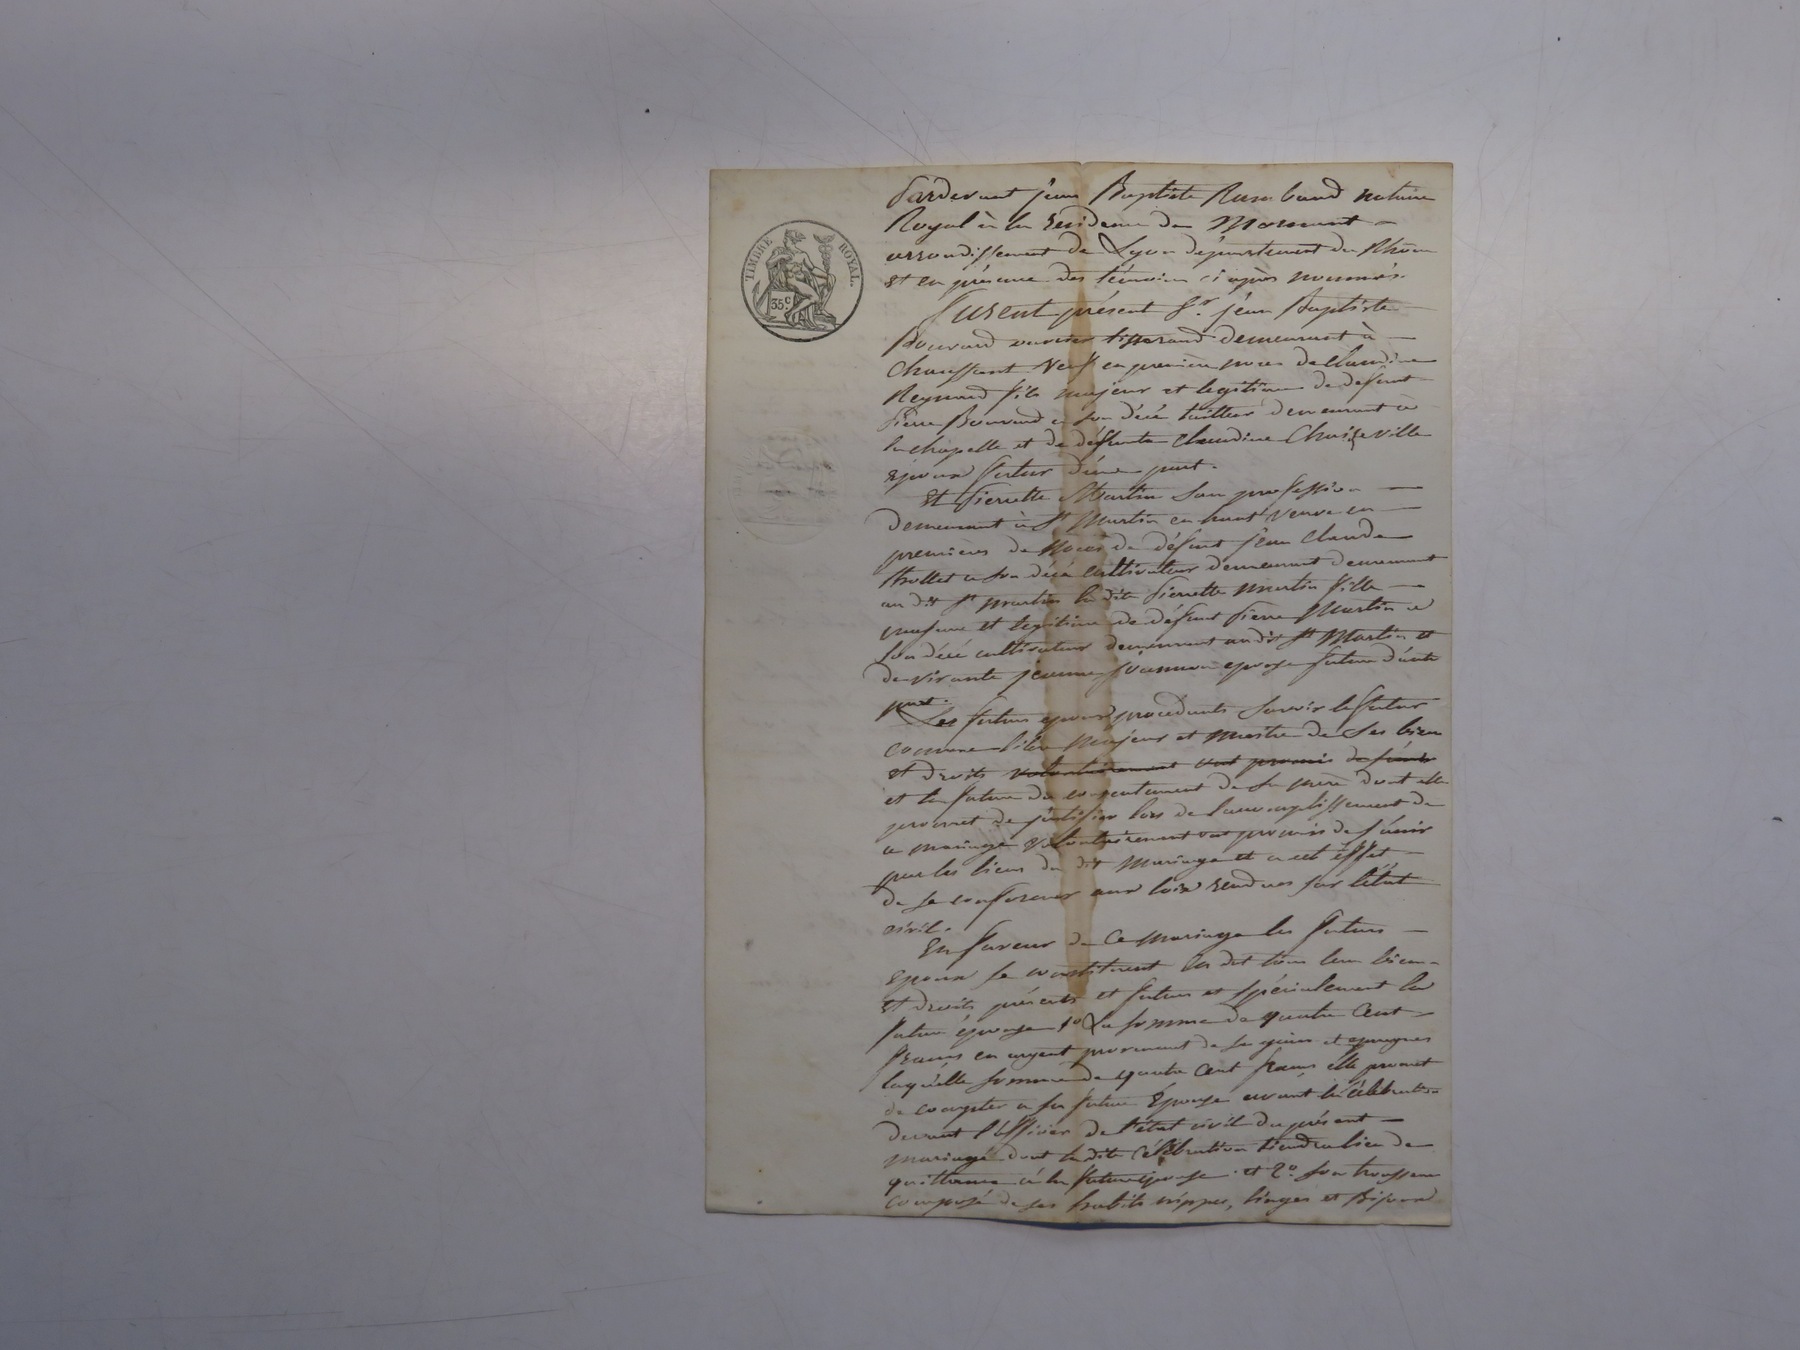 TIMBRE ROYAL.
35 c.
Pardevant jean Baptiste Rambaud notaire
Royal à la residence de Mornant
arrondissement de Lyon département du Rhône
et en présence des témoins ci après nommés.
Furent présent Sr. jean Baptiste
Bouvard ouvrier tisserand demeurant à
Chaussant Veuf en première noces de Claudine
Reynard fils majeur et legitime de defunt
Pierre Bouvard a son décé tailleur demeurant à
la chapelle et de défunte Claudine Choizeville
époux futur d'une part.
Et Pierrette Martin san profession
demeurant à St Martin en haut Veuve en
premières de Noces de défunt jean Claude
a son décé cultivateur demeurant demeurant
au dit St martin la dite Pierrette martin fille
majeure et legitime de défunt Pierre Martin a
son décé cultivateur demeurant au dit St Martin et
de vivante jeanne epouse future d'autre
part.
Les futurs epoux procédants savoir le futur
comme libre Majeur et Maitre de ses biens
et droits volontairement ont promis de s'unir
et la future du consentement de sa mère dont elle
promet de justifier lors de l'accomplissement de
ce mariage volontairement ont promis de s'unir
par les liens du dit Mariage et a cet effet
de se conformer aux loix rendues sur l'état
civil.
En faveur de ce mariage les futurs
Epoux se constituent en dot tous leur biens
et droits présents et futurs et spécialement la
future épouse 1° La somme de quatre Cent
francs en argent provenant de ses gains et epargnes
laquelle somme de quatre Cent francs elle promet
de compter a son futur Epouse avant la célébration
devant l'officier de l'état civil du présent
mariage dont la dite Célébration tiendra lieu de
quittance à la future épouse et 2° son trousseau
composé de ses habits nippes, linges et Bijoux